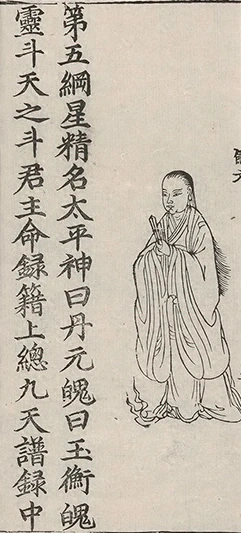 第五綱星精名太平神曰丹元魄曰玉衡魄
靈斗天之斗君主命録籍上總九天譜録中